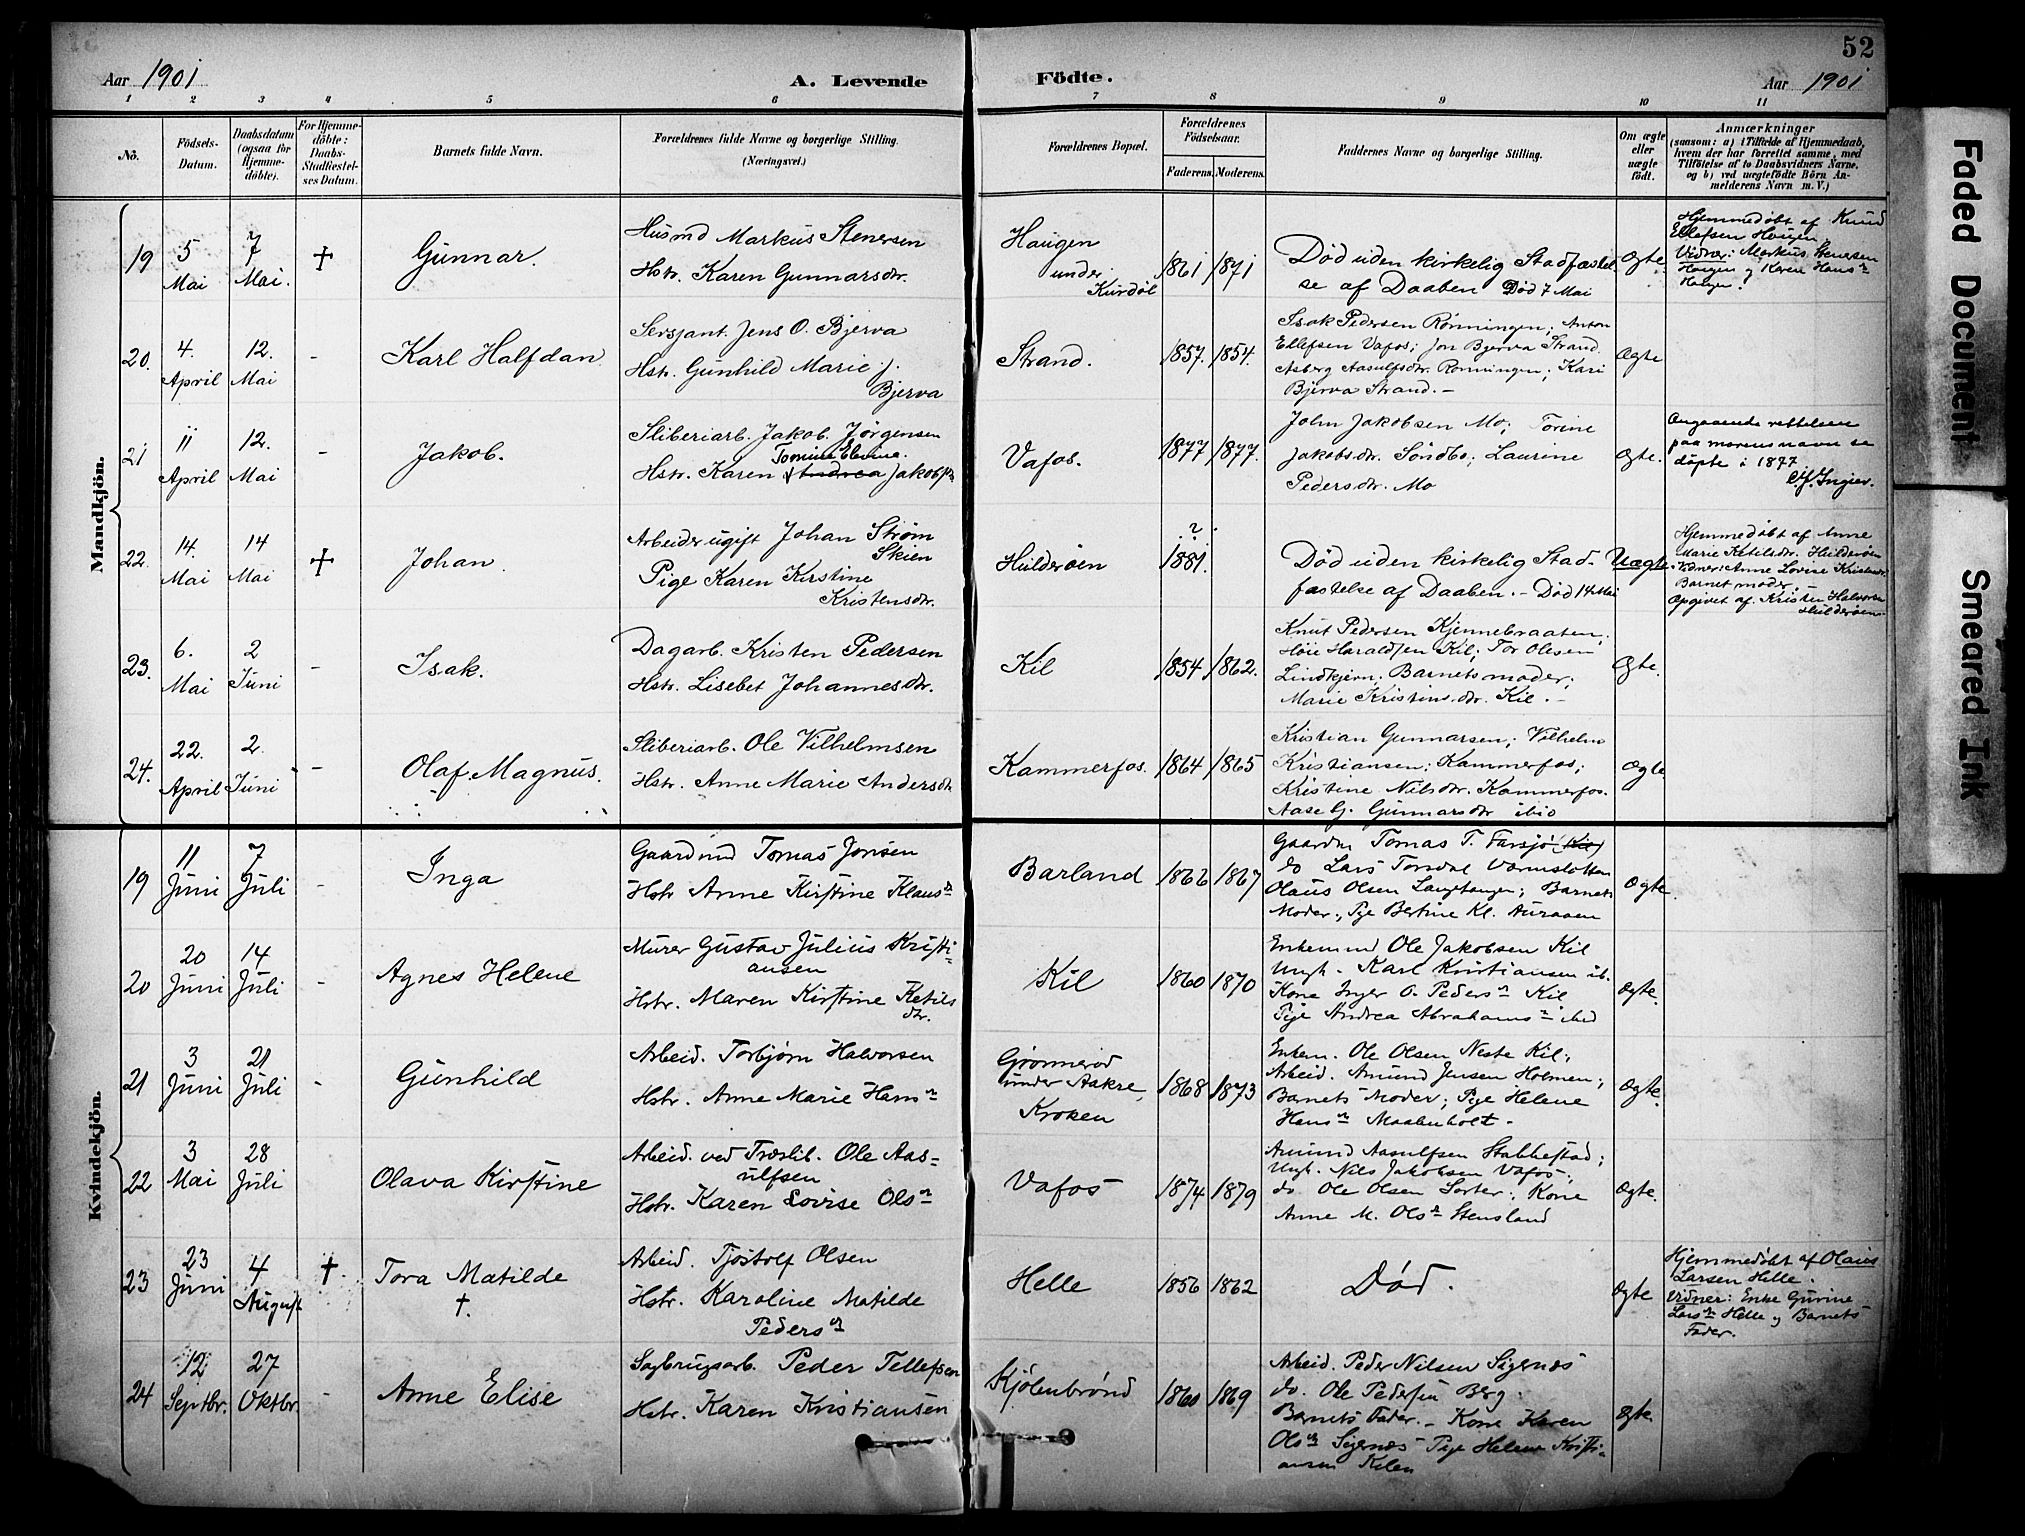 52
Aar 1901
A. Levende
Födte.
Aar 1901
1 2 3 4 5 6 7 8 9 10 11
No.
Födsels-
Datum.
Daabsdatum
(ogsaa for
Hjemme-
döbte).
For Hjemme-
döbte:
Daabs-
Stadfæstel-
ses Datum.
Barnets fulde Navn.
Forældrenes fulde Navne og borgerlige Stilling.
(Næringsvei.)
Forældrenes Bopæl.
Forældrenes
Födselsaar.
Faderens. Moderens.
Faddernes Navne og borgerlige Stilling.
Om ægte
eller
uægte
födt.
Anmærkninger
(saasom: a) i Tilfælde af Hjemmedaab,
hvem der har forrettet samme, med
Tilföielse af to Daabsvidners Navne.
og b) ved uægtefödte Börn An-
melderens Navn m. V.)
Mandkjön.
19
5
Mai
7
Mai.
+
Gunnar.
Husmd Markus Stenersen
Hstr. Karen Gunnarsdtr.
Haugen
under
Kurdøl
1861 1871
Død uden kirkelig Stadfæstel-
se af Daaben Død 7 Mai
Ægte
Hjemmedøbt af Knud
Ellefsen Haugen
Vidner: Markus Stenersen
Haugen og Karen Hans
Haugen.
20.
4.
April
12.
Mai
-
Karl Halfdan
Sersjant. Jens O. Bjerva
Hstr. Gunhild Marie J.
Bjerva
Strand.
1857. 1854.
Isak Pedersen Rønningen; Anton
Ellefsen Vafos; Jon Bjerva Strand.
Asberg Aasulfsdtr. Rønningen; Kari
Bjerva Strand.-
Ægte
21
11
April
12.
Mai
-
Jakob.
Sliberiarb. Jakob Jörgensen
Tomine Elvine.
Hstr. Karen Andrea Jakobsdtr
Vafos.
1877 1877.
John Jakobsen Mo; Torine
Jakobsdtr. Søndbø; Laurine
Pedersdtr. Mo
Ægte.
Angaaende rettelsen
paa morens navn se
døpte i 1877
Ingier.
22.
14.
Mai
14
Mai
+
Johan.
Arbeider ugift Johan Strøm
Skien
Pige Karen Kirstine
Kristensdtr.
Hulderøen
?
1881.
Død uden kirkelig Stad-
fæstelse af Daaben. - Død 14 Mai
Uægte.
Hjemmedøbt af Anne
Marie Ketilsdtr. Hulderøen
Vidner: Anne Lovise Kristensdtr.
Barnet moder.-
Opgivet af Kristen Halvorsen
Hulderøen.
23.
6.
Mai
2
Juni
-
Isak.
Dagarb. Kristen Pedersen
Hstr. Lisebet Johannesdtr.
Kil
1854 1862.
Knut Pedersen Kjennebraaten;
Høie Haraldsen Kil; Tor Olesen
Lindkjern; Barnets moder;
Marie Kristinsdtr. Kil.-
Ægte.
24.
22.
April
2.
Juni
-
Olaf Magnus.
Sliberiarb. Ole Vilhelmsen
Hstr. Anne Marie Andersdtr
Kammerfos.
1864 1865
Kristian Gunnarsen; Vilhelm
Kristiansen; Kammerfos;
Kristine Nilsdtr. Kammerfos.
Aase G. Gunnarsdtr ibid
Ægte
Kvindekjön.
19
11
Juni
7
Juli
-
Inga
Gaardmd Tomas Jonsen
Hstr Anne Kirstine Klausdr
Barland
1862 1867
Gaardm Tomas T. Farsjø (Kil)
do Lars Torsdal
Olaus Olsen Langtangen; Barnets
Moder; Pige Bertine Kl. Auraaen
Ægte.
20
20
Juni
14
Juli
-
Agnes Helene
Murer Gustav Julius Kristi-
ansen
Hstr. Maren Kirstine Ketils
dtr.
Kil
1860 1870
Enkemnd Ole Jakobsen Kil
Ungk. Karl Kristiansen ib.
Kone Inger O. Pedersdr Kil
Pige Andrea Abrahamsdr ibid
Ægte.
21
3
Juni
21
Juli
-
Gunhild
Arbeid. Torbjørn Halvorsen
Hstr. Anne Marie Hansdr
Grønnerød
under Aakre,
Kroken
1868 1873
Enkem. Ole Olsen Neste Kil;
Arbeid. Amund Jensen Holmen;
Barnets Moder; Pige Helene
Hansdr Maalenholt.
Ægte.
22
3
Mai
28
Juli
Olava Kirstine
Arbeid. ved Træslib. Ole Aas-
ulfsen
Hstr. Karen Lovise Olsdr
Vafos
1874 1879
Amund Aasulfsen Stabbestad;
Ungk. Nils Jakobsen Vafos;
do. Ole Olsen Sorter; Kone
Anne M. Olsdr Stensland
Ægte.
23
23
Juni
4
August
†
Tora Matilde
†.
Arbeid. Tjostolf Olsen
Hstr. Karoline Matilde
Pedersdr
Helle
1856 1862
Død.
Ægte
Hjemmedøbt af Olaus
Larsen Helle.
Vidner: Enke Gurine
Larsdr Helle og Barnets
Fader.
24
12
Septbr.
27
Oktbr.
-
Anne Elise
Sagbrugsarb. Peder Tellefsen
Hstr. Karen Kristiansen
Kjølebrønd
1860 1869
Arbeid. Peder Nilsen Sigernes
do. Ole Pedersen Berg.
Barnets Fader. - Kone Karen
Olsdr Sigernes Pige Helene Kristi-
ansen Kilen
Ægte.
Faded Document
Smeared Ink